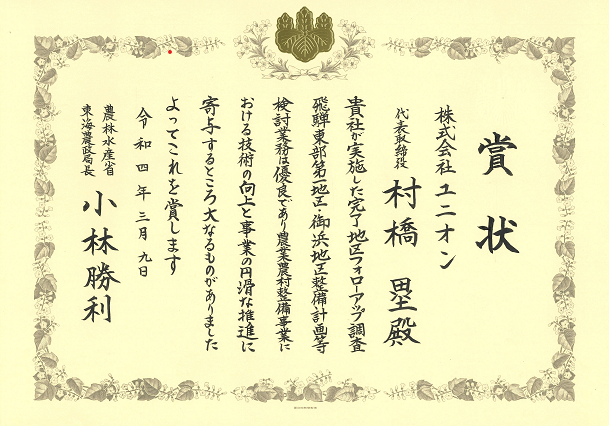 賞状
株式会社ユニオン
代表取締役
村橋 塁殿
貴社が実施した完了地区フォローアップ調査
飛騨東部第一地区・御浜地区整備計画等
検討業務は優良であり農業農村整備事業に
おける技術の向上と事業の円滑な推進に
寄与するところ大なるものがありました
よってこれを賞します
令和四年三月九日
農林水産省
東海農政局長
小林勝利